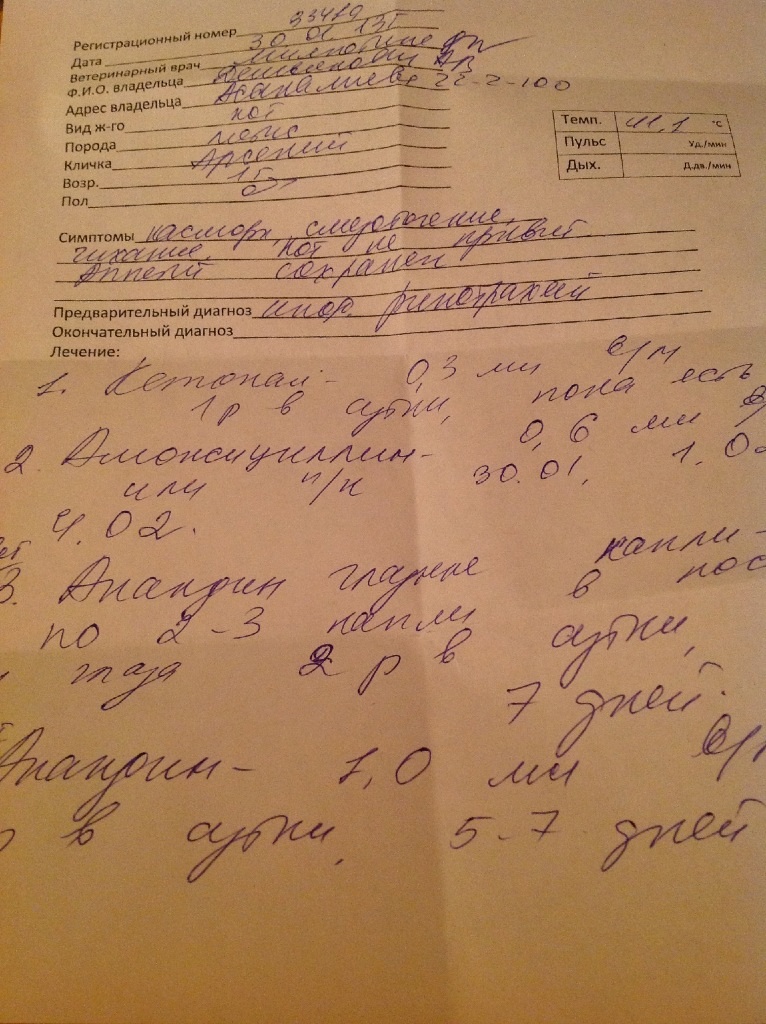 Регистрационный номер 33419
Дата 30 01 13г
Ветеринарный врач
Ф.И.О. владельца
Адрес владельца 22-2-100
Вид ж-го кот
Порода мейс
Кличка Арсений
Возр. 1г
Пол ♂
Темп. 41,1 °С
Пульс Уд./мин
Дых. Д.дв./мин
Симптомы насморк, слезотечение,
чихание, кот не привит
Аппетит сохранен
Предварительный диагноз инф. ринотрахеит
Окончательный диагноз
Лечение:
1. Кетонал - 0,3 мл в/м
1 р в сутки, пока есть
2. Амоксициллин - 0,6 мл
или п/к 30.01, 1.02
4.02.
3. Анандин глазные капли -
по 2-3 капли в нос
глаза 2 р в сутки,
7 дней.
Анандин - 1,0 мл в/м
в сутки, 5-7 дней